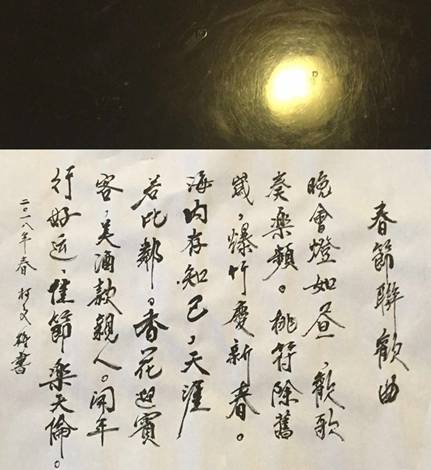 春節聯歡曲
晚會燈如昼，歡歌
奏樂頻。桃符除舊
歲，爆竹慶新春。
海内存知己，天涯
若比鄰。香花迎賓
客，美酒款親人。開年
行好运，佳節樂天倫。
二〇一八年春 書